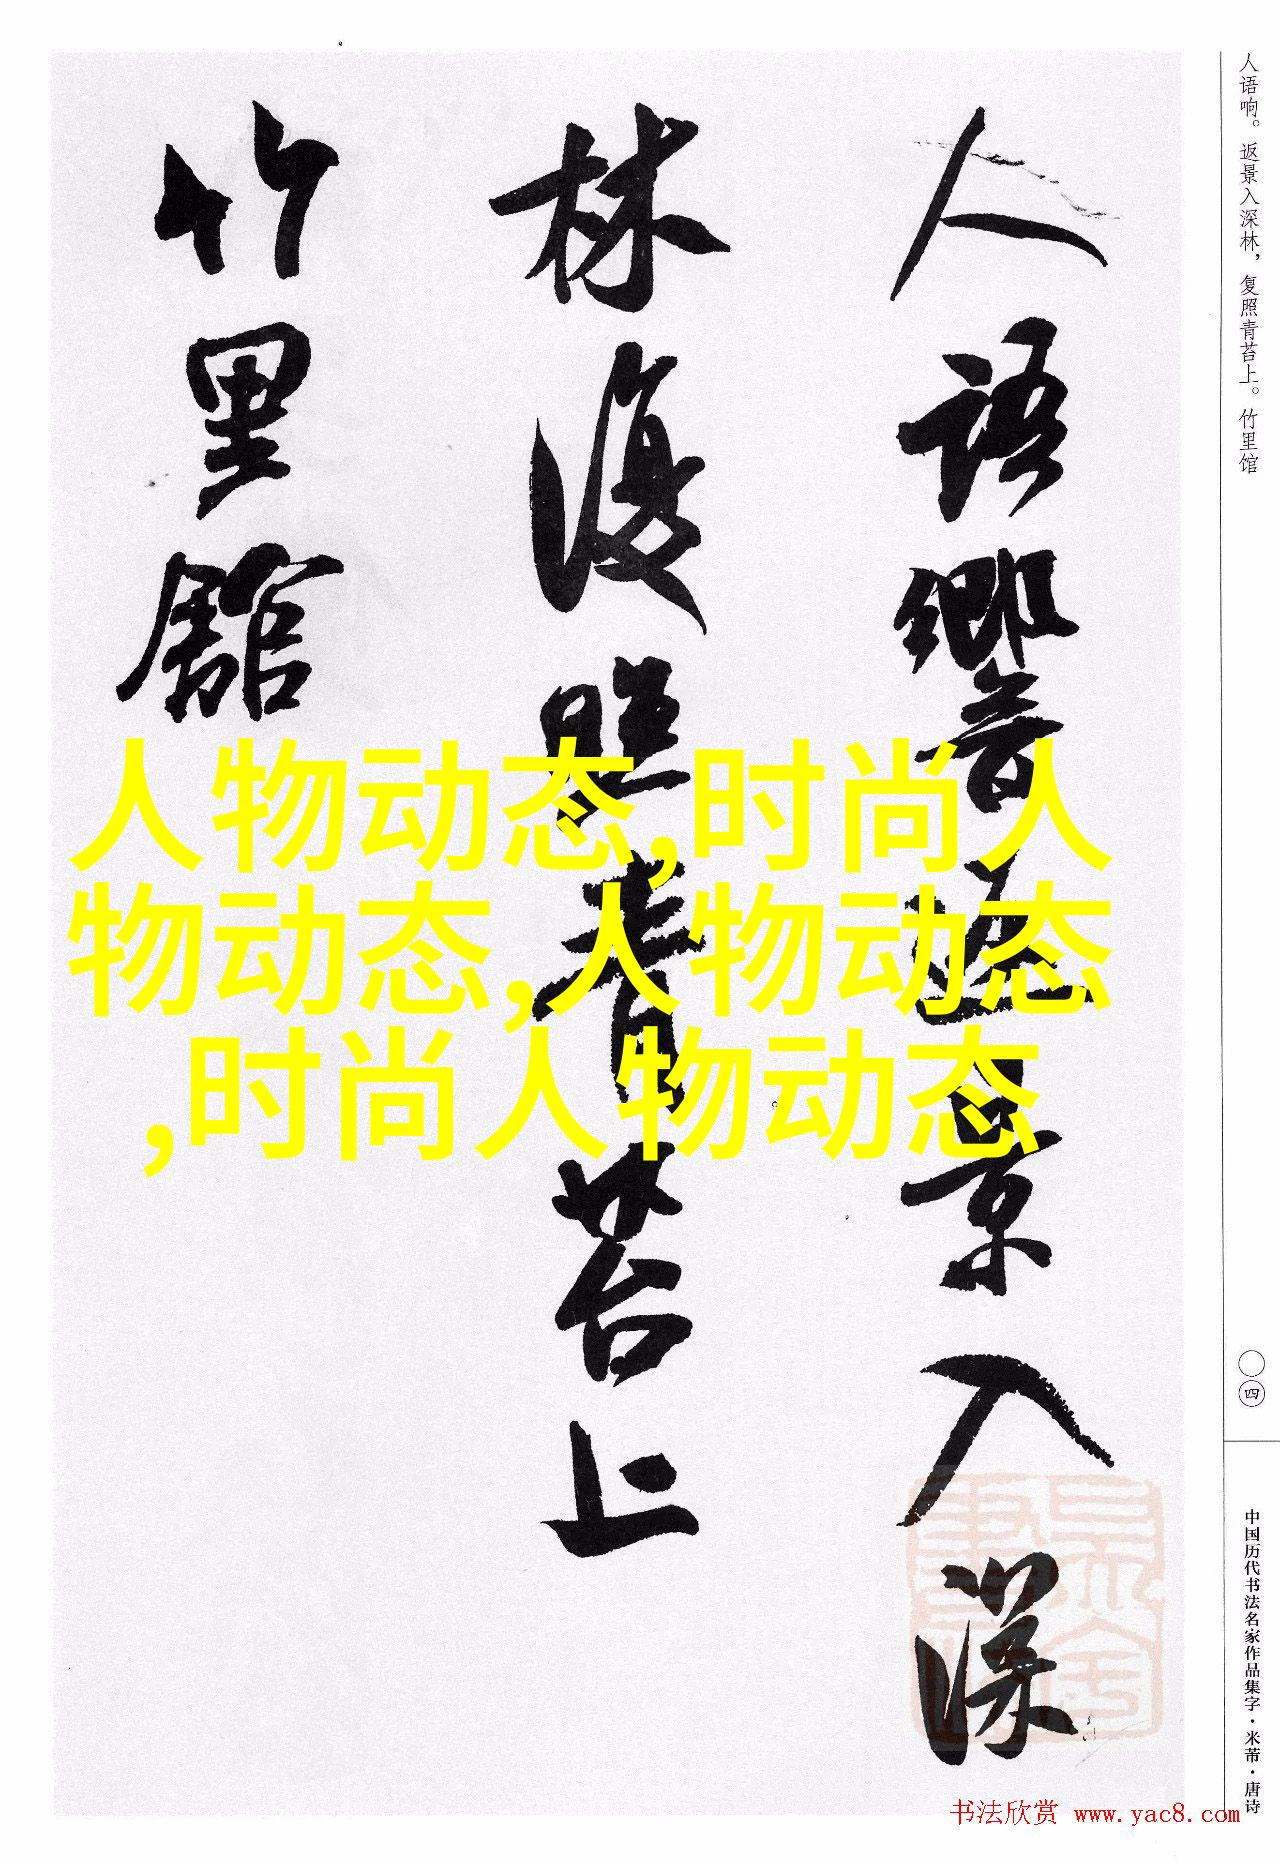 人语响。返景入深林，复照青苔上。竹里馆
人語響返景入深
林復照青苔上
竹里館
人物动态,时尚人
物动态,人物动态
,时尚人物动态
〇四
中国历代书法名家作品集字·米芾·唐诗
书法欣赏 www.yac8.com